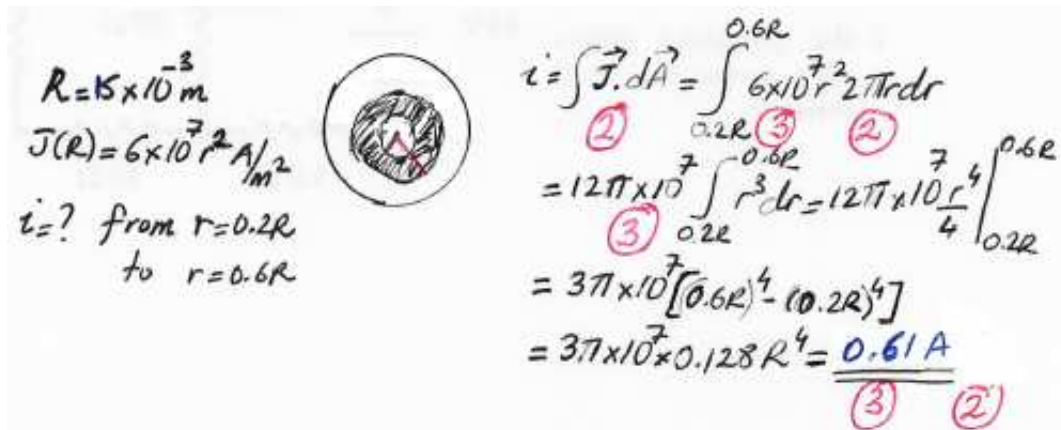 R = 15×10⁻³ m
J(R) = 6×10⁷ r² A/m²
i=? from r=0.2R
to r=0.6R
i = ∫ J⃗. dA⃗ = ∫_{0.2R}^{0.6R} 6×10⁷ r² 2πr dr
② ③ ②
= 12π×10⁷ ∫_{0.2R}^{0.6R} r³ dr = 12π×10⁷ r⁴/4 |_{0.2R}^{0.6R}
③
= 3π×10⁷ [(0.6R)⁴ - (0.2R)⁴]
= 3π×10⁷×0.128 R⁴ = 0.61 A
③ ②